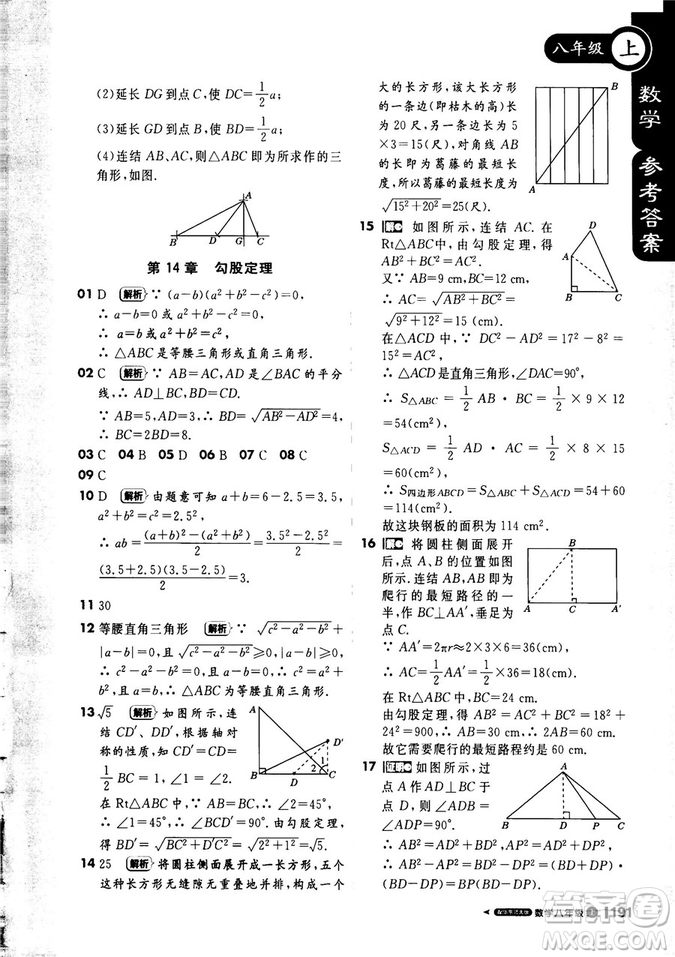 八年级 上
数学 参考答案
(2)延长 DG 到点 C,使 DC=1/2 a;
(3)延长 GD 到点 B,使 BD=1/2 a;
(4)连结 AB、AC,则△ABC 即为所求作的三
角形,如图.
A
B D G C
第 14 章 勾股定理
01 D 解析 ∵ (a-b)(a²+b²-c²)=0,
∴ a=b 或 a²+b²=c².
∴ △ABC 是等腰三角形或直角三角形.
02 C 解析 ∵ AB=AC,AD 是∠BAC 的平分
线,∴ AD⊥BC,BD=CD.
∵ AB=5,AD=3,∴ BD=√(AB²-AD²)=4,
∴ BC=2BD=8.
03 C 04 B 05 D 06 B 07 C 08 C
09 C
10 D 解析 由题意可知 a+b=6-2.5=3.5,
a²+b²=c²=2.5²,
∴ ab=((a+b)²-(a²+b²))/2=(3.5²-2.5²)/2=
((3.5+2.5)(3.5-2.5))/2=3.
11 30
12 等腰直角三角形 解析 ∵ √(c²-a²-b²)+
|a-b|=0,且√(c²-a²-b²)≥0,|a-b|≥0,
∴ c²-a²-b²=0 且 a-b=0,∴ c²=a²+b²,
且 a=b,∴ △ABC 为等腰直角三角形.
13 √5 解析 如图所示,连
结 CD′、DD′,根据轴对
称的性质,可知 CD′=CD=
1/2 BC=1,∠1=∠2.
在 Rt△ABC 中,∵ AC=BC,∴ ∠2=45°,
∴ ∠1+∠2=90°.由勾股定理,
得 BD′=√(BC²+D′C²)=√5.
A
D′
B D C
1
2
14 25 解析 将圆柱侧面展开成一长方形,五个
这种长方形无缝隙无重叠地并排拼成一个较
大的长方形,如图所示,该大长方形
的一条边(即枯木的高)
为 20 尺,另一条边长为 5
×3=15(尺),对角线 AB
的长即为葛藤的最短长
度,所以葛藤的最短长度为
√(15²+20²)=25(尺).
B
A
15 解 如图所示,连结 AC.在
Rt△ABC 中,由勾股定理,得
AB²+BC²=AC².
又∵ AB=9 cm,BC=12 cm,
∴ AC=√(AB²+BC²)=
√(9²+12²)=15(cm).
D
A
B C
在△ADC 中,∵ DC²-AD²=17²-8²=
15²=AC²,
∴ △ACD 是直角三角形,∠DAC=90°,
∴ S△ABC=1/2 AB·BC=1/2×9×12
=54(cm²),
S△ACD=1/2 AD·AC=1/2×8×15
=60(cm²),
∴ S四边形ABCD=S△ABC+S△ACD=54+60
=114(cm²).
故这块钢板的面积为 114 cm².
16 解 将圆柱侧面展开
后,点 A、B 的位置如图
所示.连结 AB,即为
爬行的最短路径的一
半,作 BC⊥AA′,垂足为
点 C.
B
A C A′
∵ AA′=2πr≈2×3×6=36(cm),
∴ AC=1/2 AA′=1/2×36=18(cm).
在 Rt△ABC 中,∵ BC=24 cm,
由勾股定理,得 AB²=AC²+BC²=18²+
24²=900,∴ AB=30 cm,∴ 2AB=60 cm.
故它需要爬行的最短路程约是 60 cm.
17 证明 如图所示,过
点 A 作 AD⊥BC 于
点 D,则∠ADB=
∠ADP=90°.
A
B D P C
∴ AB²=AD²+BD²,AP²=AD²+DP²,
∴ AB²-AP²=BD²-DP²=(BD+DP)·
(BD-DP)=BP(BD-DP).
数学八年级 上 191
答案圈
MXQE.COM